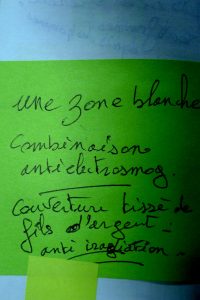 une zone blanche
combinaison
antielectrosmog.
couverture tissé de
fils d'argent -
anti irradiation -